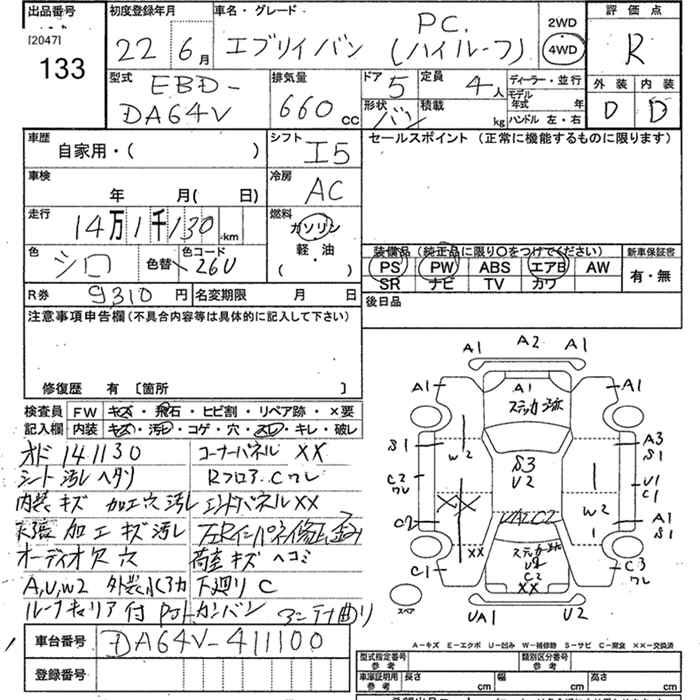 出品番号 初度登録年月 車名・グレード 評価点
[2047]
133
22 6月 エブリイバン PC. (ハイルーフ) 2WD 4WD R
型式 排気量 ドア 定員 ディーラー・並行 外装 内装
EBD-DA64V 660cc 5 4人 モデル年式 年
形状 バン 積載 kg ハンドル 左・右 D D
車歴 シフト セールスポイント (正常に機能するものに限ります)
自家用・( ) I5
車検 冷房
年 月( 日) AC
走行 燃料
14万1千130km ガソリン
軽・油
( )
色 色替 色コード
シロ 26U
装備品(純正品に限り○をつけてください) 新車保証書
PS PW ABS エアB AW 有・無
SR ナビ TV カワ
R券 9310円 名変期限 月 日 後日品
注意事項申告欄(不具合内容等は具体的に記入して下さい)
修復歴 有 [箇所 ]
検査員 FW キズ・飛石・ヒビ割・リペア跡・×要
記入欄 内装 キズ・汚レ・コゲ・穴・スレ・キレ・破レ
オド 141130 コーナーパネル XX
シート汚レ ヘタリ Rフロア.Cワレ
内装キズ 加工穴 汚レ エンドパネルXX
天張 加工キズ汚レ 左Rインパネ修正歪み
オーディオ欠 穴 荷室キズ ヘコミ
A,U,W2 下廻りC
ルーフキャリア付 アンテナ曲り
車台番号 DA64V-411100
登録番号
A1 A2 A1
A1 A1 A1
ステッカー跡
S1 A3
S1
W2 S3
U2
C2
ワレ U1
C1
C2 UAIC2 W2 A1
S1
XX XX
C1 C2
XX C3
ワレ
スペア UA1 U2
A-キズ E-エクボ U-凹み W-補修跡 S-サビ C-腐食 XX-交換済
型式指定番号 参考 類別区分番号 参考
車庫証明用 参考 長さ cm 幅 cm 高さ cm